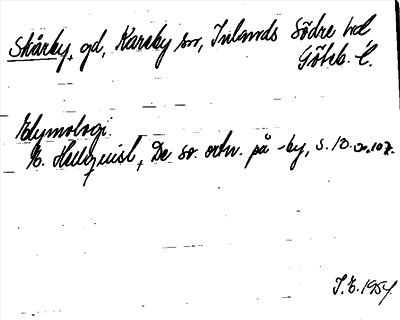 Skårby, gd, Kareby sn, Inlands Södre hd
Göteb. l.
Etymologi.
E. Hellquist, De sv. ortn. på -by, s. 10 o. 107.
I.E. 1954.